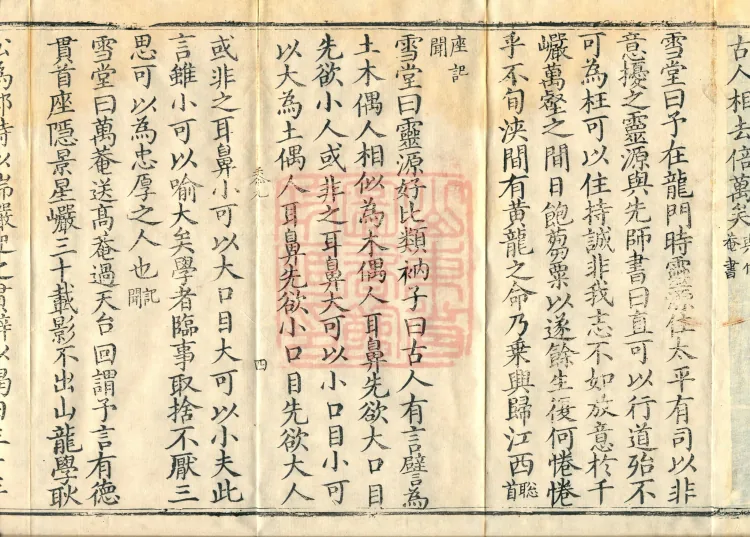 古人相去倍萬矣菴書
雪堂曰予在龍門時靈源住太平有司以非
意擾之靈源與先師書曰直可以行道殆不
可為枉可以住持誠非我志不如放意於千
巖萬壑之間日飽芻粟以遂餘生復何惓惓
乎不旬浹間有黃龍之命乃乘興歸江西聰首
座記聞
雪堂曰靈源好比類衲子曰古人有言譬為
土木偶人相似為木偶人耳鼻先欲大口目
先欲小人或非之耳鼻大可以小口目小可
以大為土偶人耳鼻先欲小口目先欲大人
四
或非之耳鼻小可以大口目大可以小夫此
言雖小可以喻大矣學者臨事取捨不厭三
思可以為忠厚之人也記聞
雪堂曰萬菴送高菴過天台回謂予言有德
貫首座隱景星巖三十載影不出山龍學耿